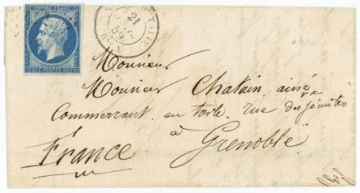 EMPIRE FRANC.
21
59
Monsieur
Monsieur Chatain, ainé
Commercant en toile, rue des Jésuites
à
Grenoble
France